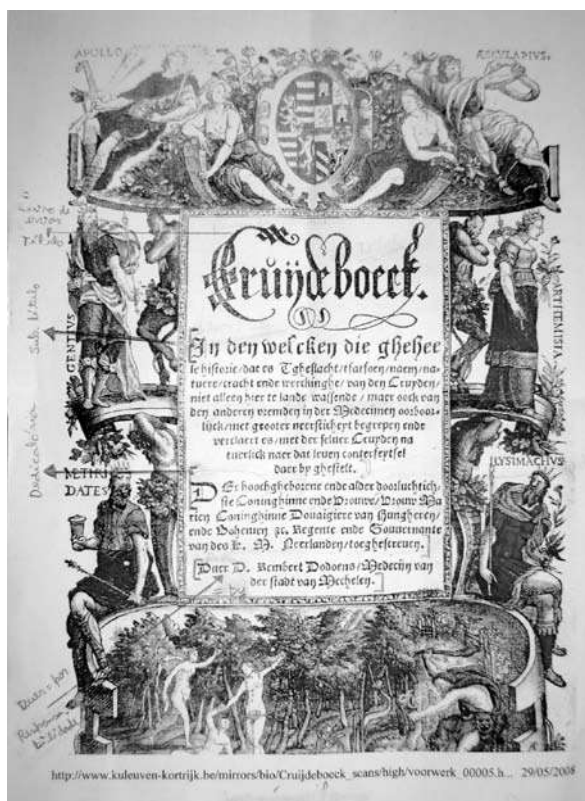 APOLLO
ÆSCULAPIUS.
GENTIUS
ARTHEMISIA
METHRI
DATES
LYSIMACHUS
Cruijdeboeck.
In den welcken die ghehee
le historie/dat es Tgheslacht/tfatsoen/naem/na-
tuere/cracht ende werckinghe/van den Cruyden/
niet alleen hier te lande wassende/maer oock van
den anderen vremden in der Medecijnen oorboor-
lijck/met grooter neersticheyt begrepen ende
verclaert es/met der seluer Cruyden na
tuerlick naer dat leuen conterfeytsel
daer by ghestelt.
Der hoochgheborene ende alder doorluchtich-
ste Coninghinne ende Vrouwe/Vrouw Ma
rien Coninghinne Douaigiere van Hungheren/
ende Bohemen ꝛc. Regente ende Gouuernante
van des K. M. Neerlanden/toegheschreuen.
Duer D. Rembert Dodoens/Medecijn van
der stadt van Mechelen.
Título
Sub. título
Dedicatoria
http://www.kuleuven-kortrijk.be/mirrors/bio/Cruijdeboeck_scans/high/voorwerk_00005.h... 29/05/2008